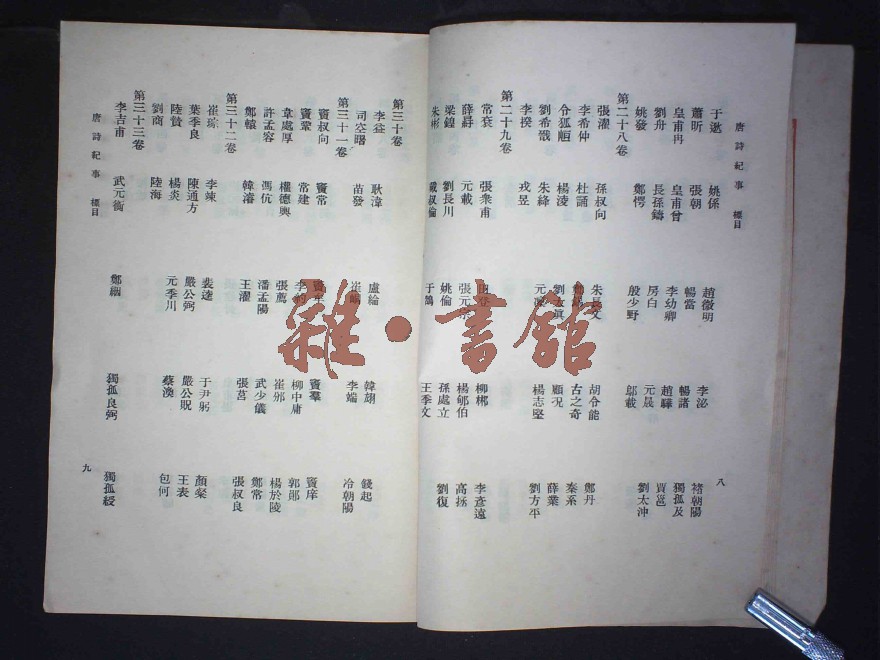 唐詩紀事 標目 八
于逖 姚係 趙微明 李泌 褚朝陽
蕭昕 張朝 暢當 暢諸 獨孤及
皇甫冉 皇甫曾 李幼卿 趙驊 賈邕
劉舟 長孫鑄 房白 元晟 劉太沖
姚發 鄭愕 殷少野 鄔載
第二十八卷
張濯 孫叔向 朱長文 胡令能 鄭丹
李希仲 杜誦 古之奇 秦系
令狐峘 楊凌 顧況 薛業
劉希戩 朱絳 楊志堅 劉方平
李揆 戎昱
第二十九卷
常袞 張衆甫 柳郴 李彥遠
元載 楊郇伯 高拯
梁鍠 劉長川 姚倫 孫處立 劉復
朱彬 戴叔倫 于鵠 王季文
第三十卷
李益 耿湋 盧綸 韓翃 錢起
司空曙 苗發 崔峒 李端 冷朝陽
第三十一卷
竇叔向 竇常 竇牟 竇羣 竇庠
竇鞏 常建 李約 柳中庸 郭鄖
韋處厚 權德輿 張薦 崔邠 楊於陵
許孟容 馮伉 潘孟陽 武少儀 鄭常
鄭轅 韓濬 王濯 張莒 張叔良
第三十二卷
崔琮 李竦 裴達 于尹躬 顏粲
葉季良 陳通方 嚴公弼 嚴公貺 王表
陸贄 楊炎 元季川 蔡渙 包何
劉商 陸海
第三十三卷
李吉甫 武元衡 鄭絪 獨孤良弼 獨孤綬
唐詩紀事 標目 九
雜·書館